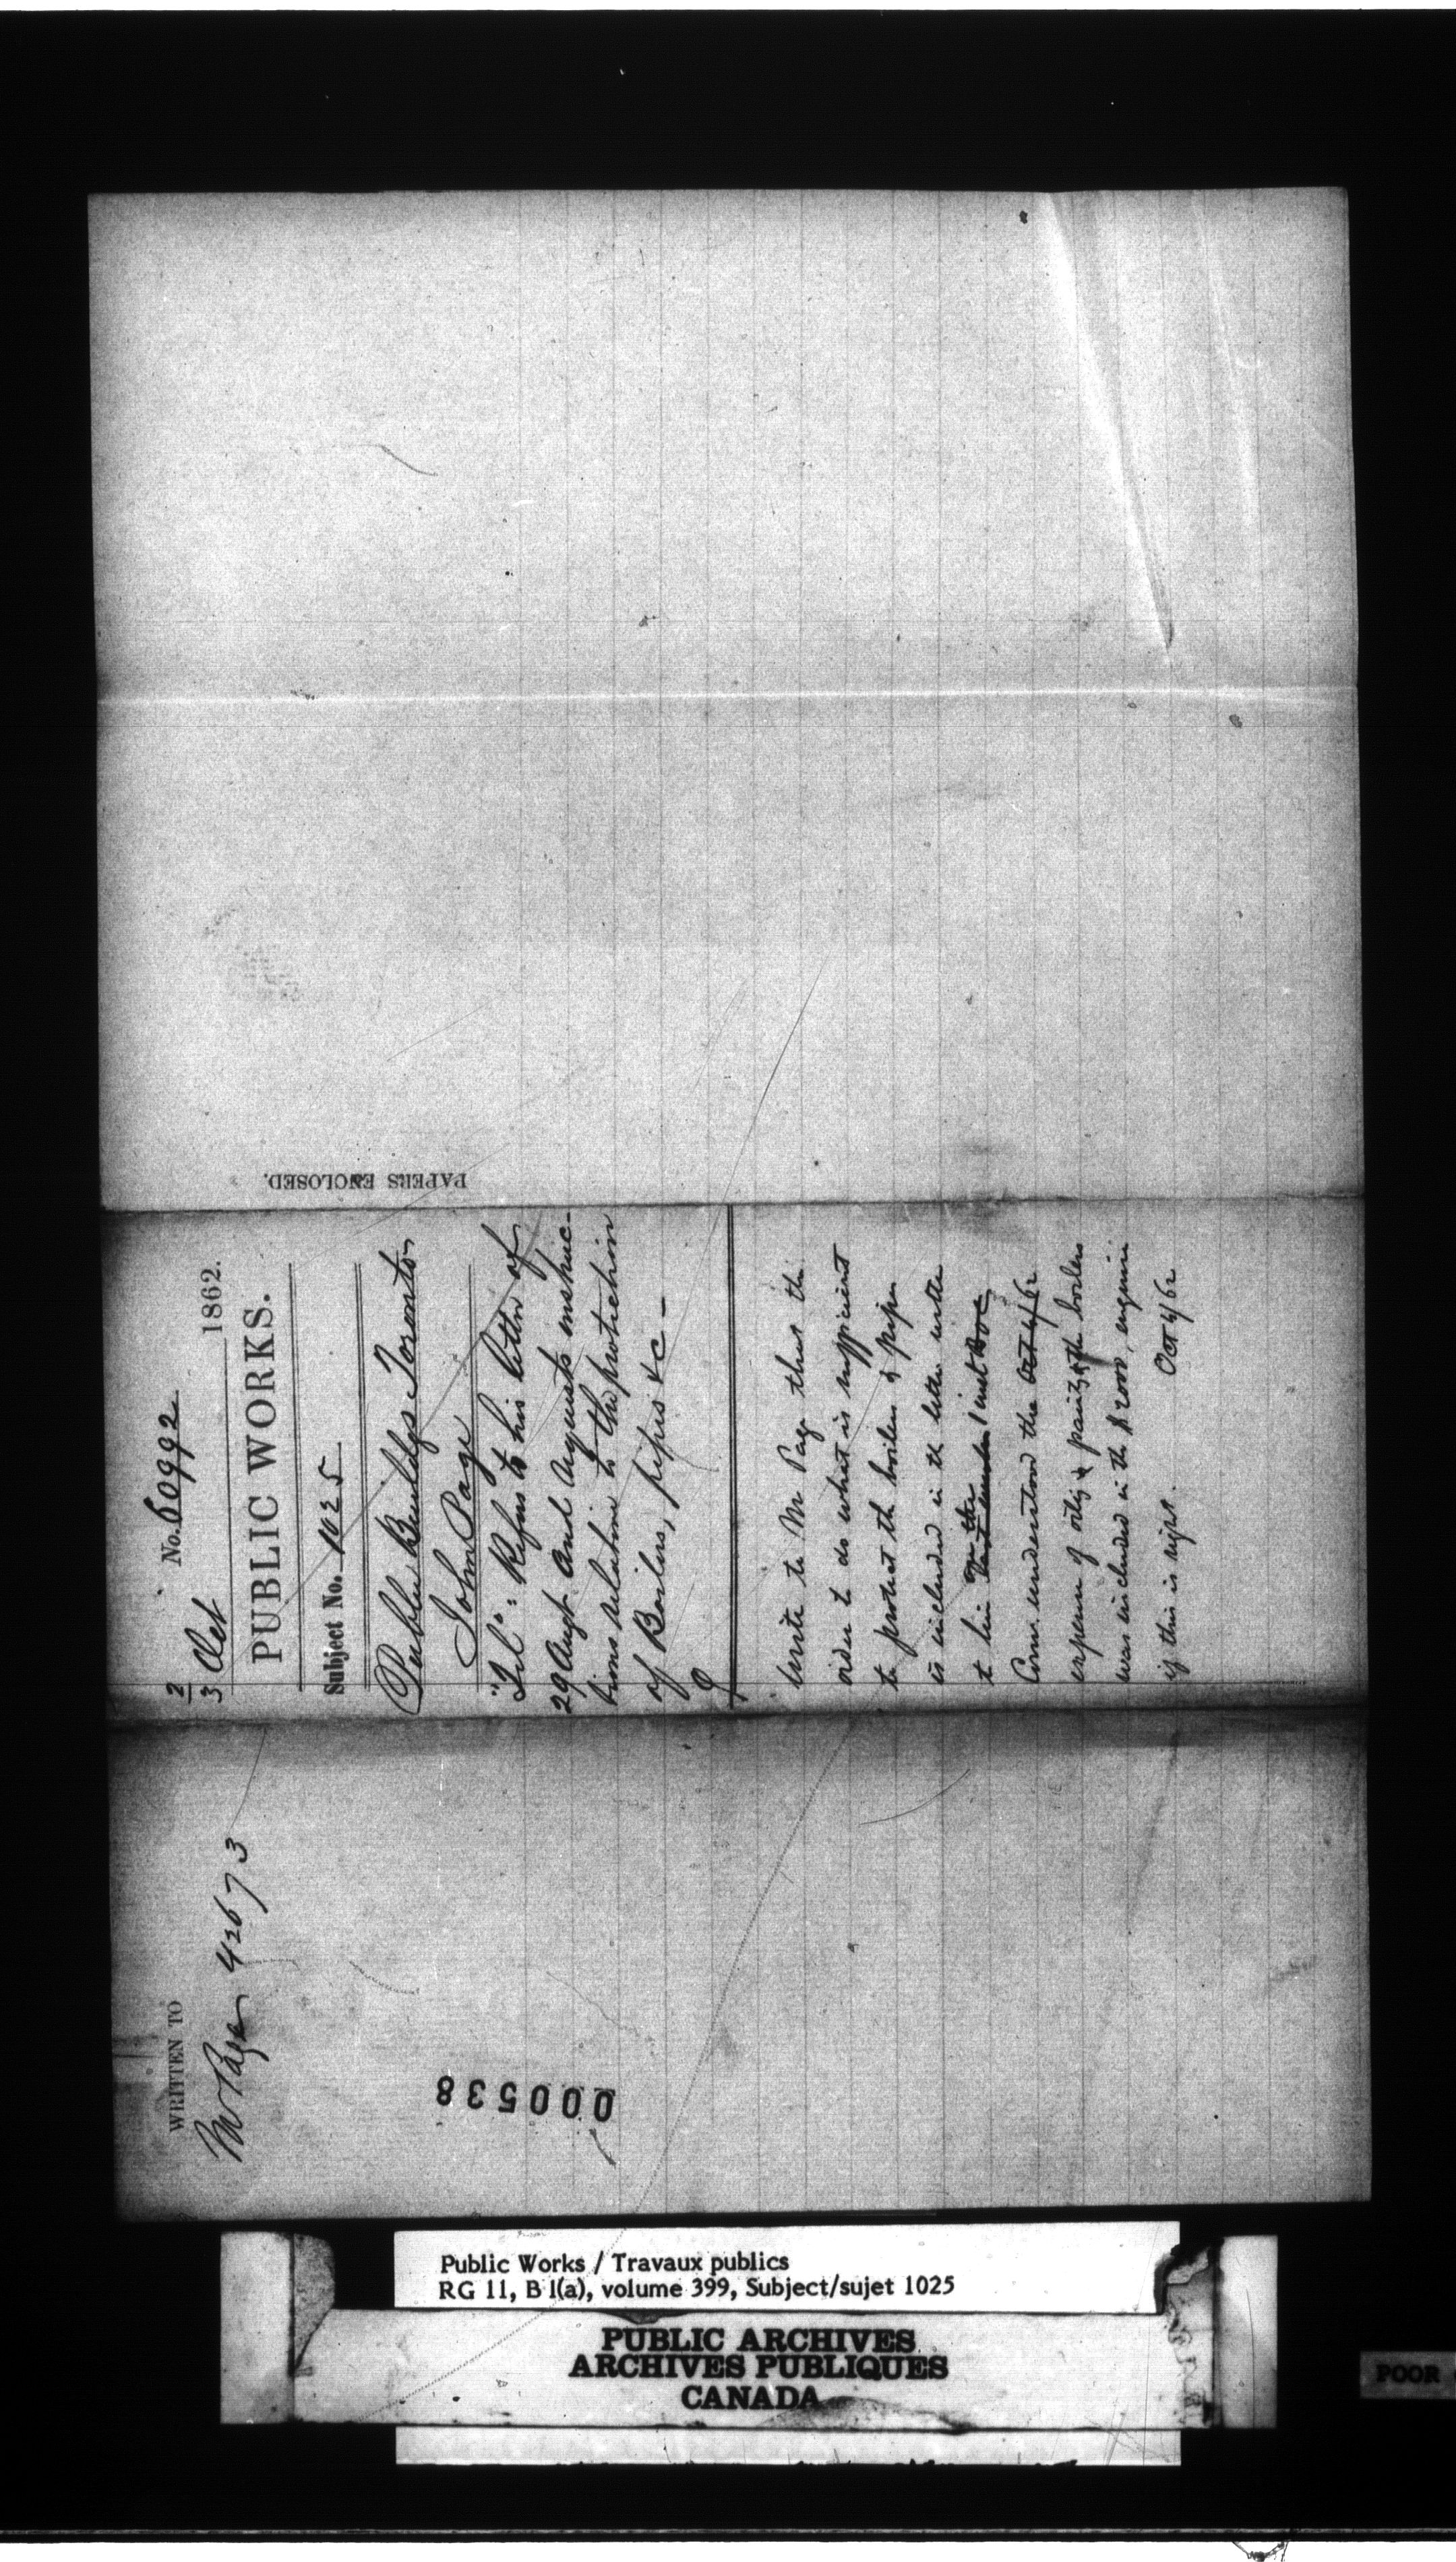 2/3 Oct No. 60992 1862.
PUBLIC WORKS.
Subject No. 1025
Public Buildgs Toronto
John Page
"Tel": Refers to his letter of
29 Augt and requests instruc-
tions relative to the protection
of Boilers, pipes &c -
Write to Mr Page thus the
order to do what is sufficient
to protect the boilers & pipes
is included in the letter
to him
Com. understood the Oct 4/62
expense of oilg & paintg the boilers
was included in the $2000, enquire
if this is right. Oct 4/62
PAPERS ENCLOSED.
WRITTEN TO
Mr Page 42673
000538
Public Works / Travaux publics
RG 11, B 1(a), volume 399, Subject/sujet 1025
PUBLIC ARCHIVES
ARCHIVES PUBLIQUES
CANADA
POOR